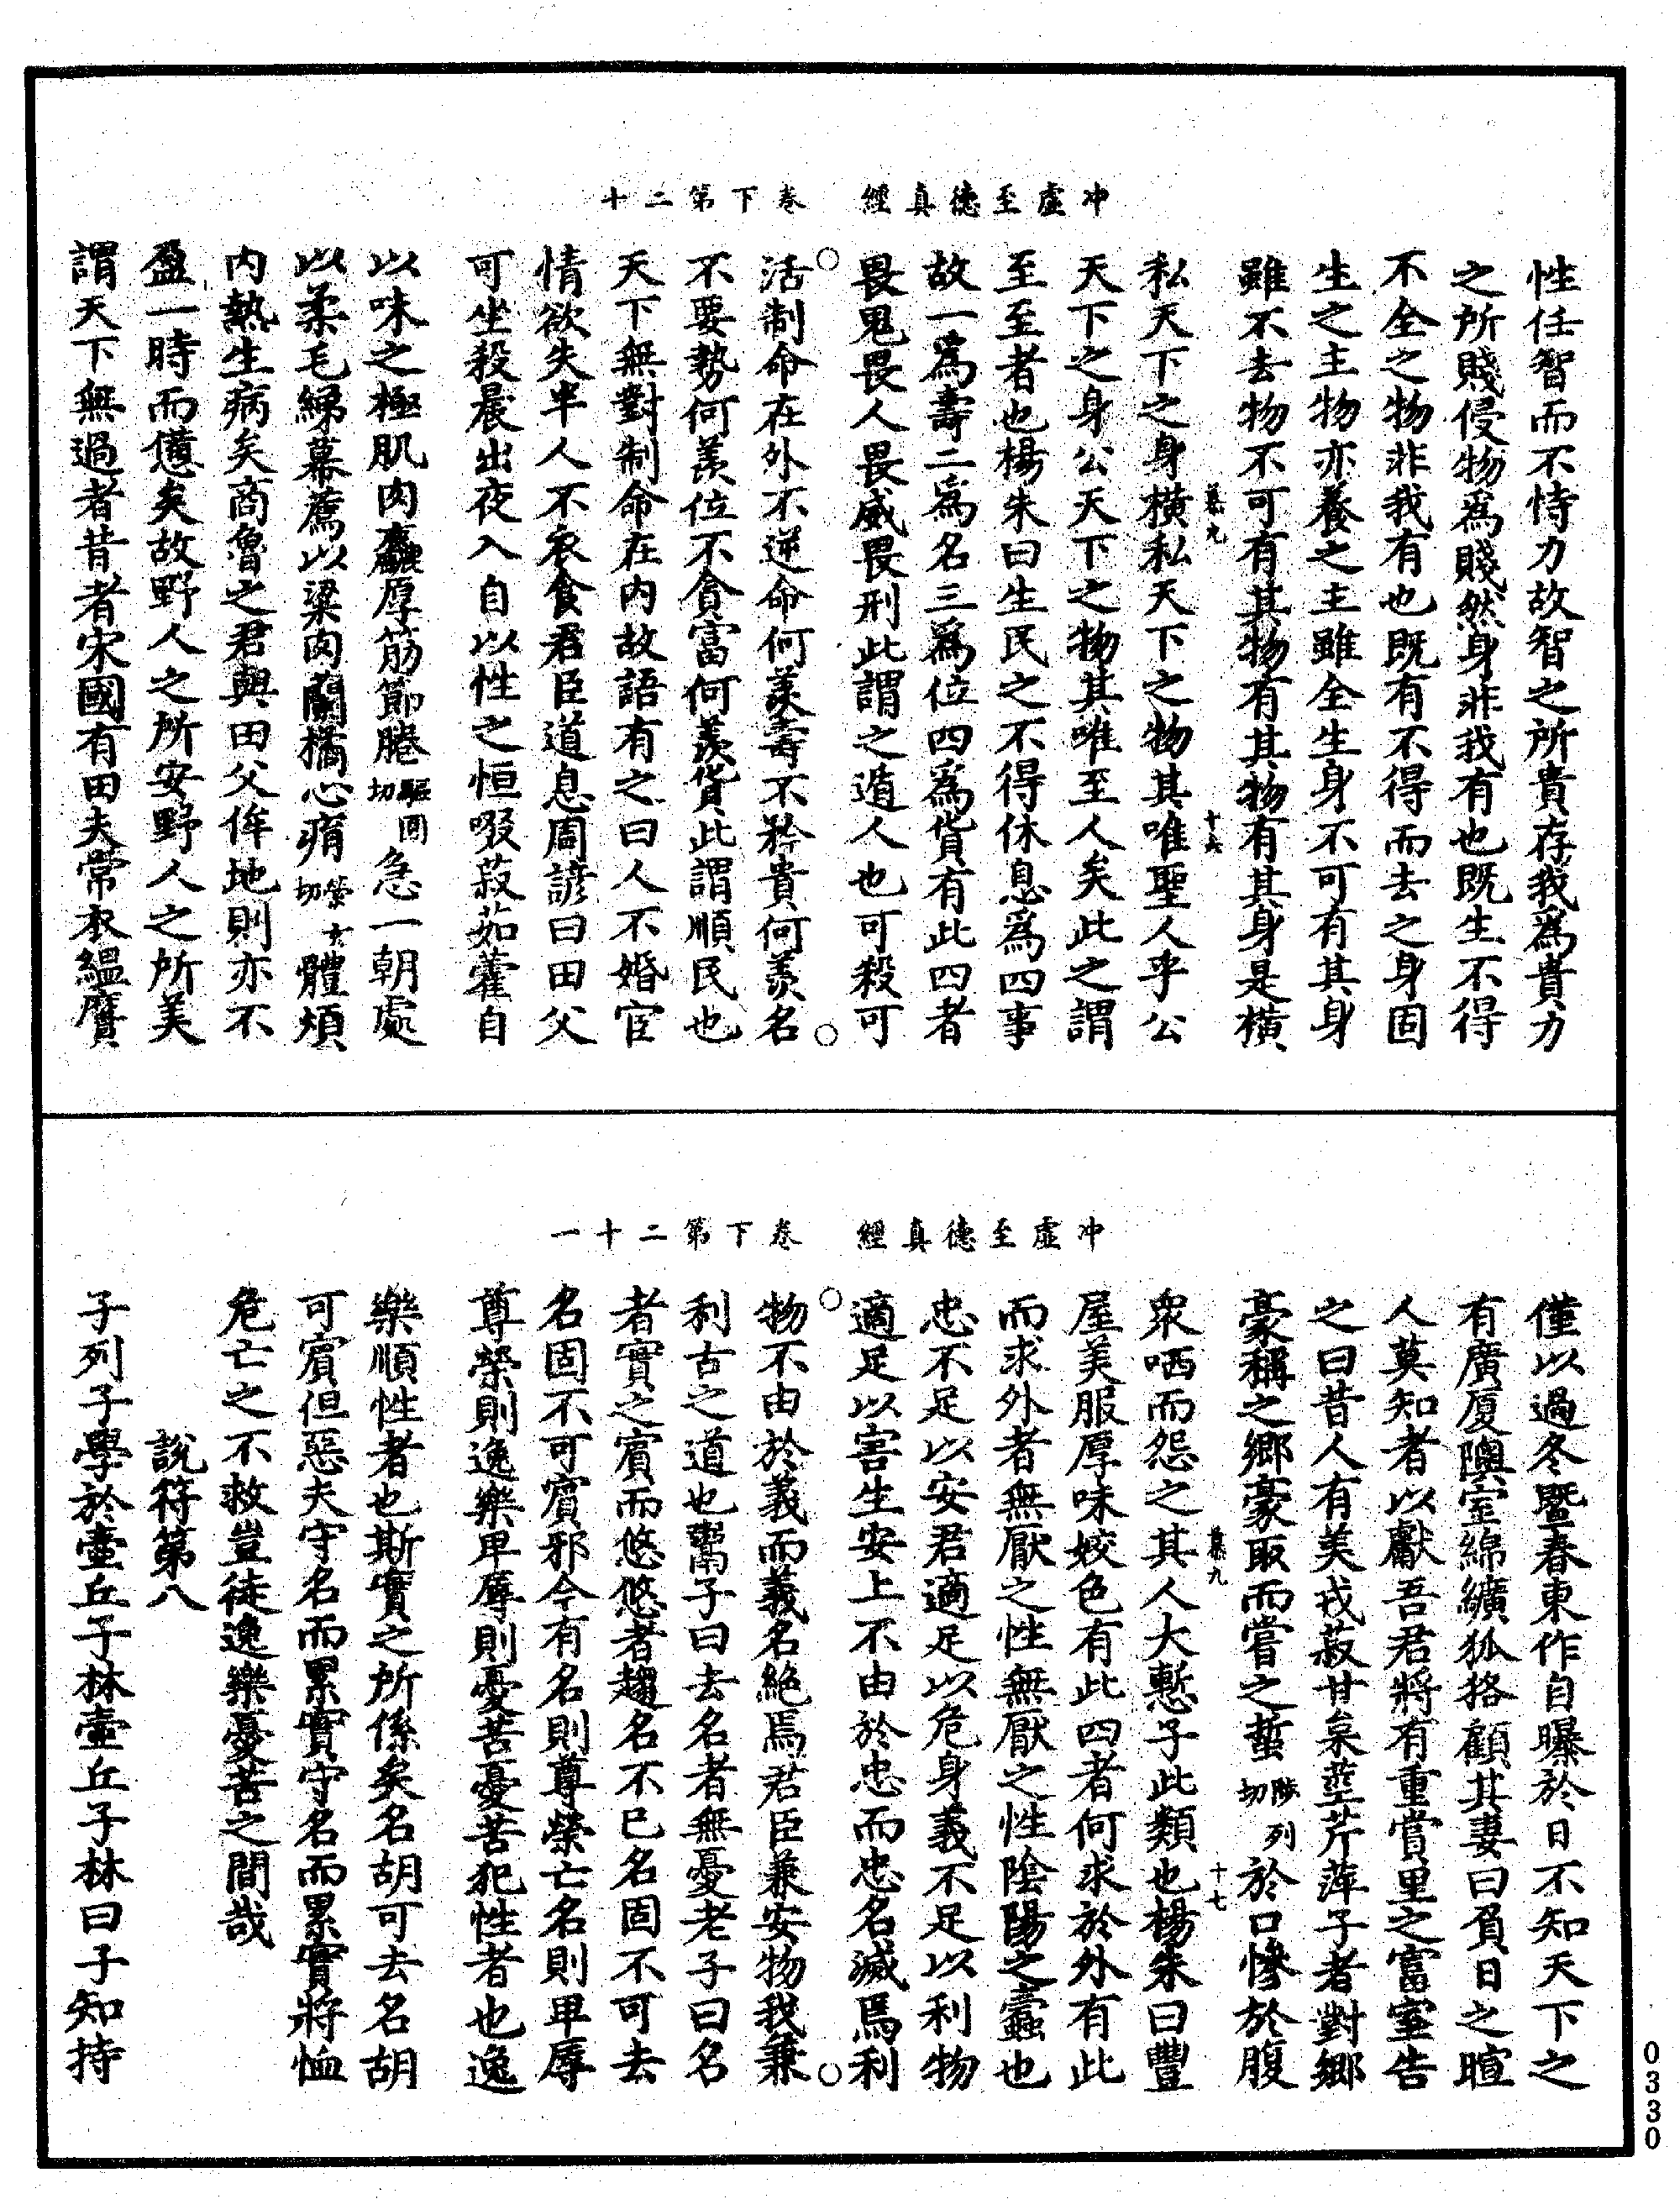 冲虛至德真經　卷下第二十
性任智而不恃力故智之所貴存我爲貴力
之所賤侵物爲賤然身非我有也既生不得
不全之物非我有也既有不得而去之身固
生之主物亦養之主雖全生身不可有其身
雖不去物不可有其物有其物有其身是橫
私天下之身橫私天下之物其唯聖人乎公
慕九　十六
天下之身公天下之物其唯至人矣此之謂
至至者也楊朱曰生民之不得休息爲四事
故一爲壽二爲名三爲位四爲貨有此四者
畏鬼畏人畏威畏刑此謂之遁人也可殺可
活制命在外不逆命何羨壽不矜貴何羨名
不要勢何羨位不貪富何羨貨此謂順民也
天下無對制命在内故語有之曰人不婚宦
情欲失半人不衣食君臣道息周諺曰田父
可坐殺晨出夜入自以性之恒啜菽茹藿自
以味之極肌肉麤厚筋節腃驅圓切急一朝處
以柔毛綈幕薦以粱肉蘭橘心㾓縈玄切體煩
内熱生病矣商魯之君與田父侔地則亦不
盈一時而憊矣故野人之所安野人之所美
謂天下無過者昔者宋國有田夫常衣縕黂
冲虛至德真經　卷下第二十一
僅以過冬暨春東作自曝於日不知天下之
有廣厦隩室綿纊狐狢顧其妻曰負日之暄
人莫知者以獻吾君將有重賞里之富室告
之曰昔人有美戎菽甘枲莖芹萍子者對鄉
豪稱之鄉豪取而嘗之蜇陟列切於口慘於腹
衆哂而怨之其人大慙子此類也楊朱曰豐
慕九　十七
屋美服厚味姣色有此四者何求於外有此
而求外者無厭之性無厭之性陰陽之蠹也
忠不足以安君適足以危身義不足以利物
適足以害生安上不由於忠而忠名滅焉利
物不由於義而義名絶焉君臣兼安物我兼
利古之道也鬻子曰去名者無憂老子曰名
者實之賓而悠悠者趨名不已名固不可去
名固不可賓邪今有名則尊榮亡名則卑辱
尊榮則逸樂卑辱則憂苦憂苦犯性者也逸
樂順性者也斯實之所係矣名胡可去名胡
可賓但惡夫守名而累實守名而累實將恤
危亡之不救豈徒逸樂憂苦之間哉
說符第八
子列子學於壺丘子林壺丘子林曰子知持
0330